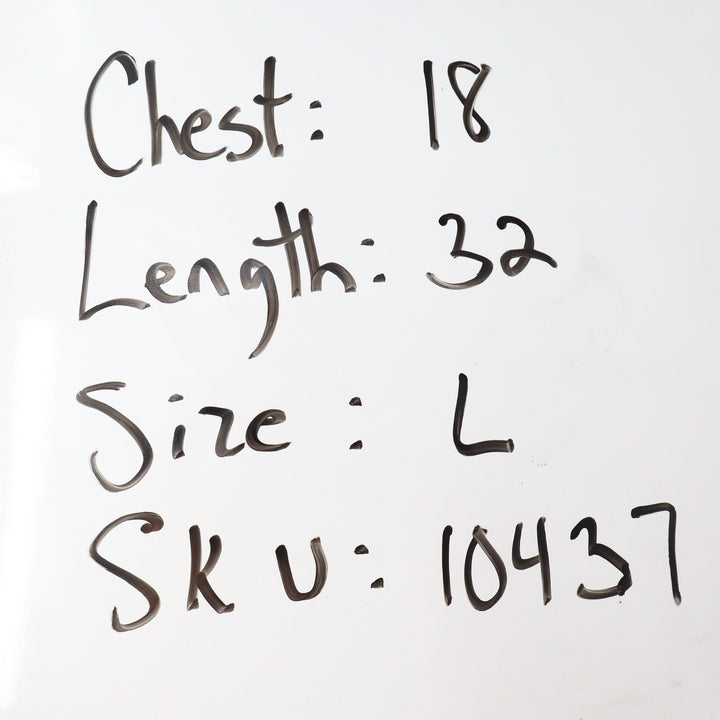 Chest: 18
Length: 32
Size: L
SKU: 10437